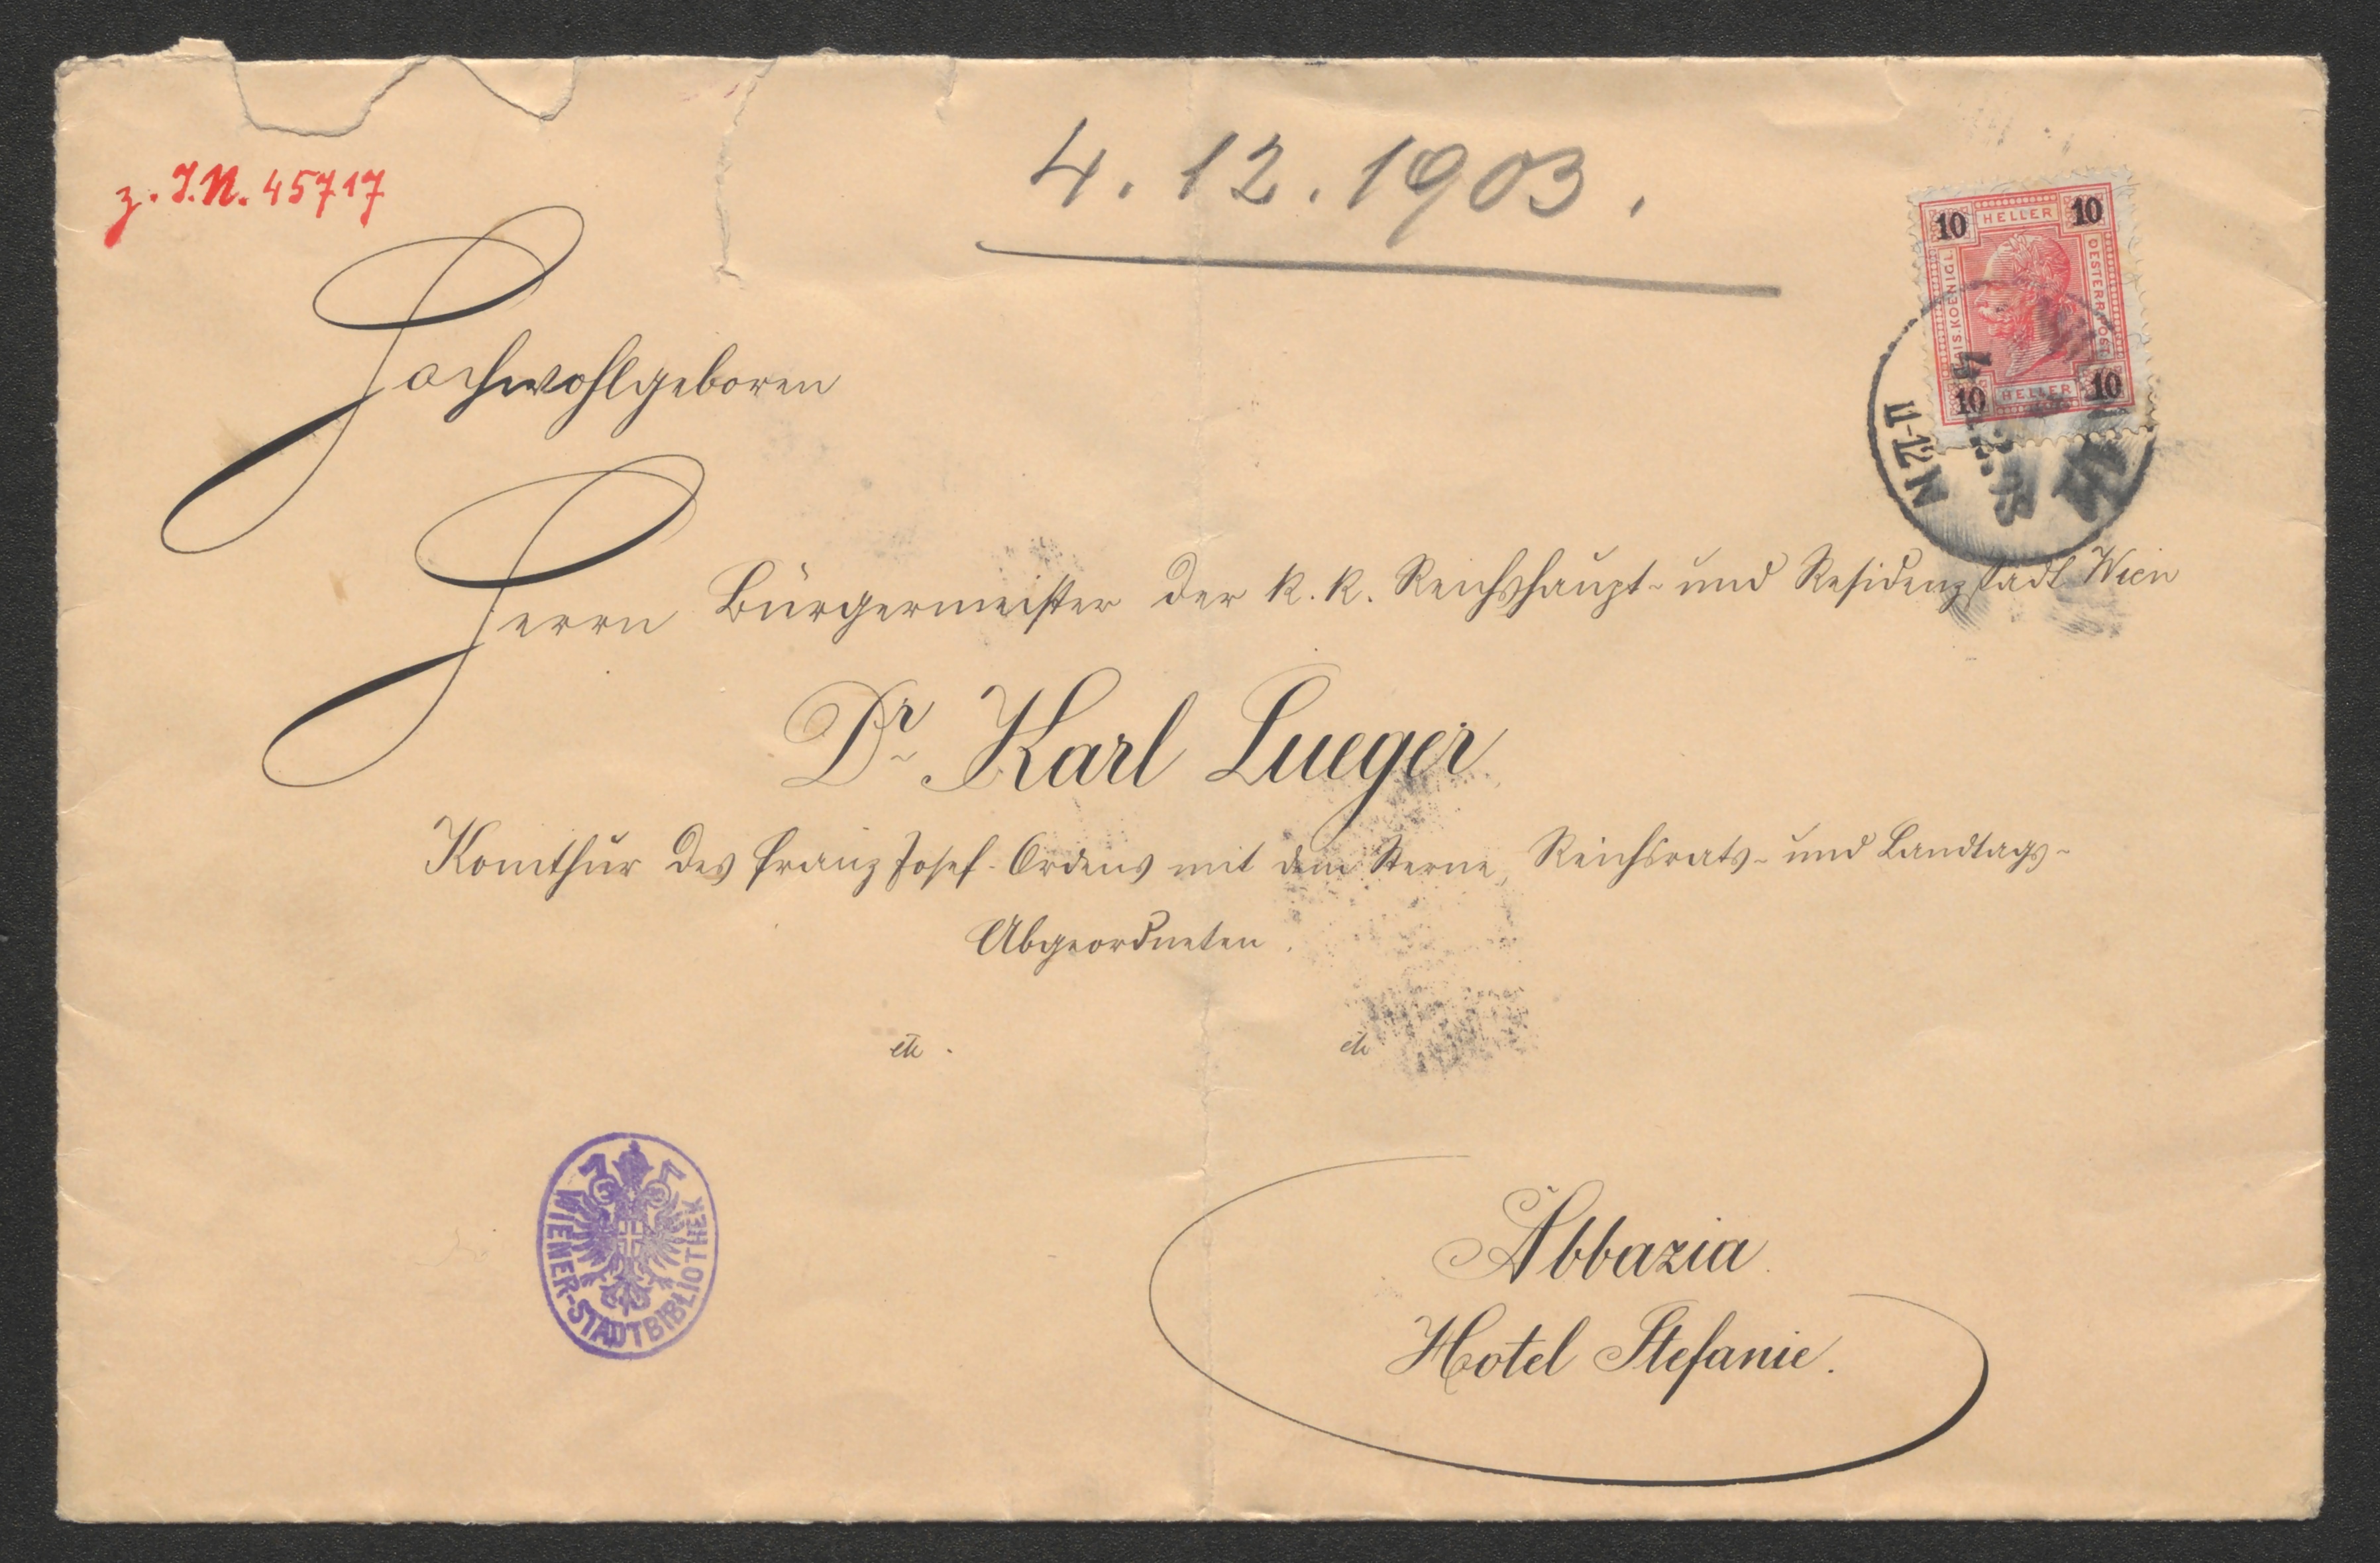 z. I.N. 45717
4. 12. 1903.
10 HELLER 10
KAIS. KOENIGL.
OESTERR. POST
10 HELLER 10
11-12 N
Hochwohlgeboren
Herrn Bürgermeister der k. k. Reichshaupt- und Residenzstadt Wien
Dr. Karl Lueger
Komthur des Franz Josef-Ordens mit dem Sterne, Reichsrats- und Landtags-
Abgeordneten.
etc. etc
WIENER-STADTBIBLIOTHEK
Abbazia.
Hotel Stefanie.